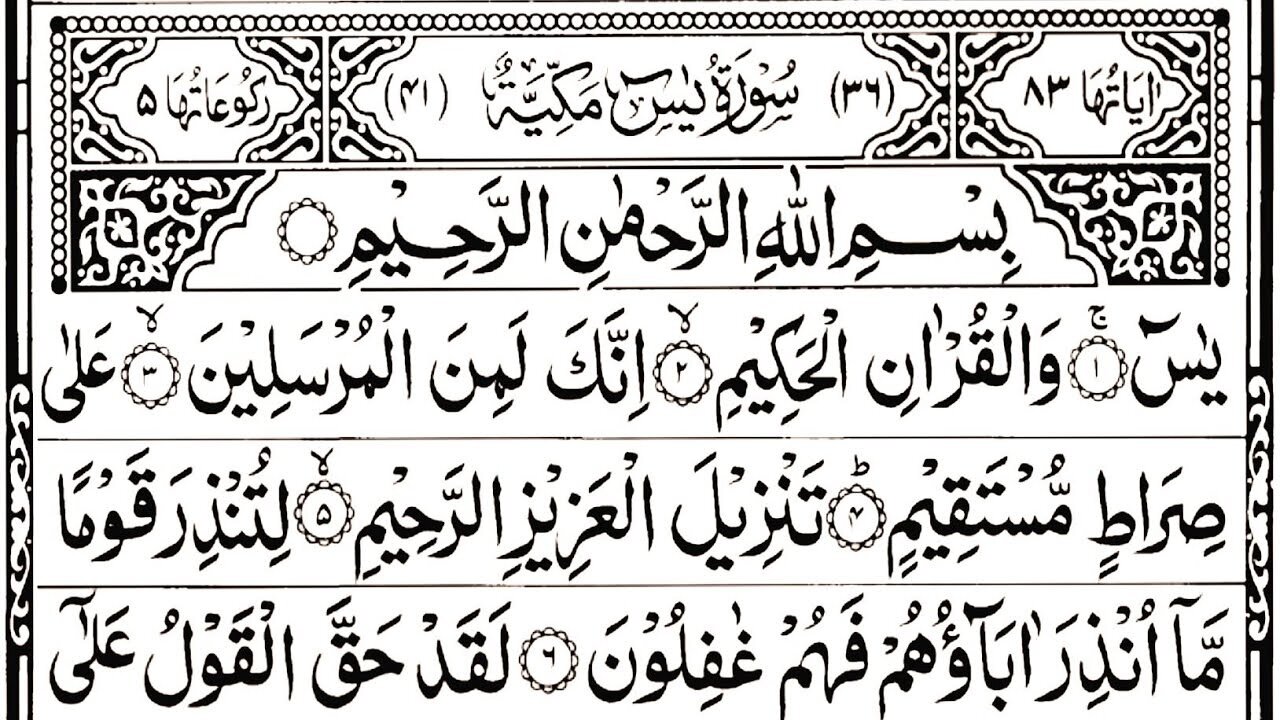 اٰيَاتُهَا ٨٣ (٣٦) سُوْرَةُ يٰسٓ مَكِّيَّةٌ (٤١) رُكُوْعَاتُهَا ٥
بِسْمِ اللّٰهِ الرَّحْمٰنِ الرَّحِيْمِ
يٰسٓ ۚ﴿۱﴾ وَالْقُرْاٰنِ الْحَكِيْمِ ۙ﴿۲﴾ اِنَّكَ لَمِنَ الْمُرْسَلِيْنَ ۙ﴿۳﴾ عَلٰى
صِرَاطٍ مُّسْتَقِيْمٍ ؕ﴿۴﴾ تَنْزِيْلَ الْعَزِيْزِ الرَّحِيْمِ ۙ﴿۵﴾ لِتُنْذِرَ قَوْمًا
مَّاۤ اُنْذِرَ اٰبَآؤُهُمْ فَهُمْ غٰفِلُوْنَ ﴿۶﴾ لَقَدْ حَقَّ الْقَوْلُ عَلٰٓى